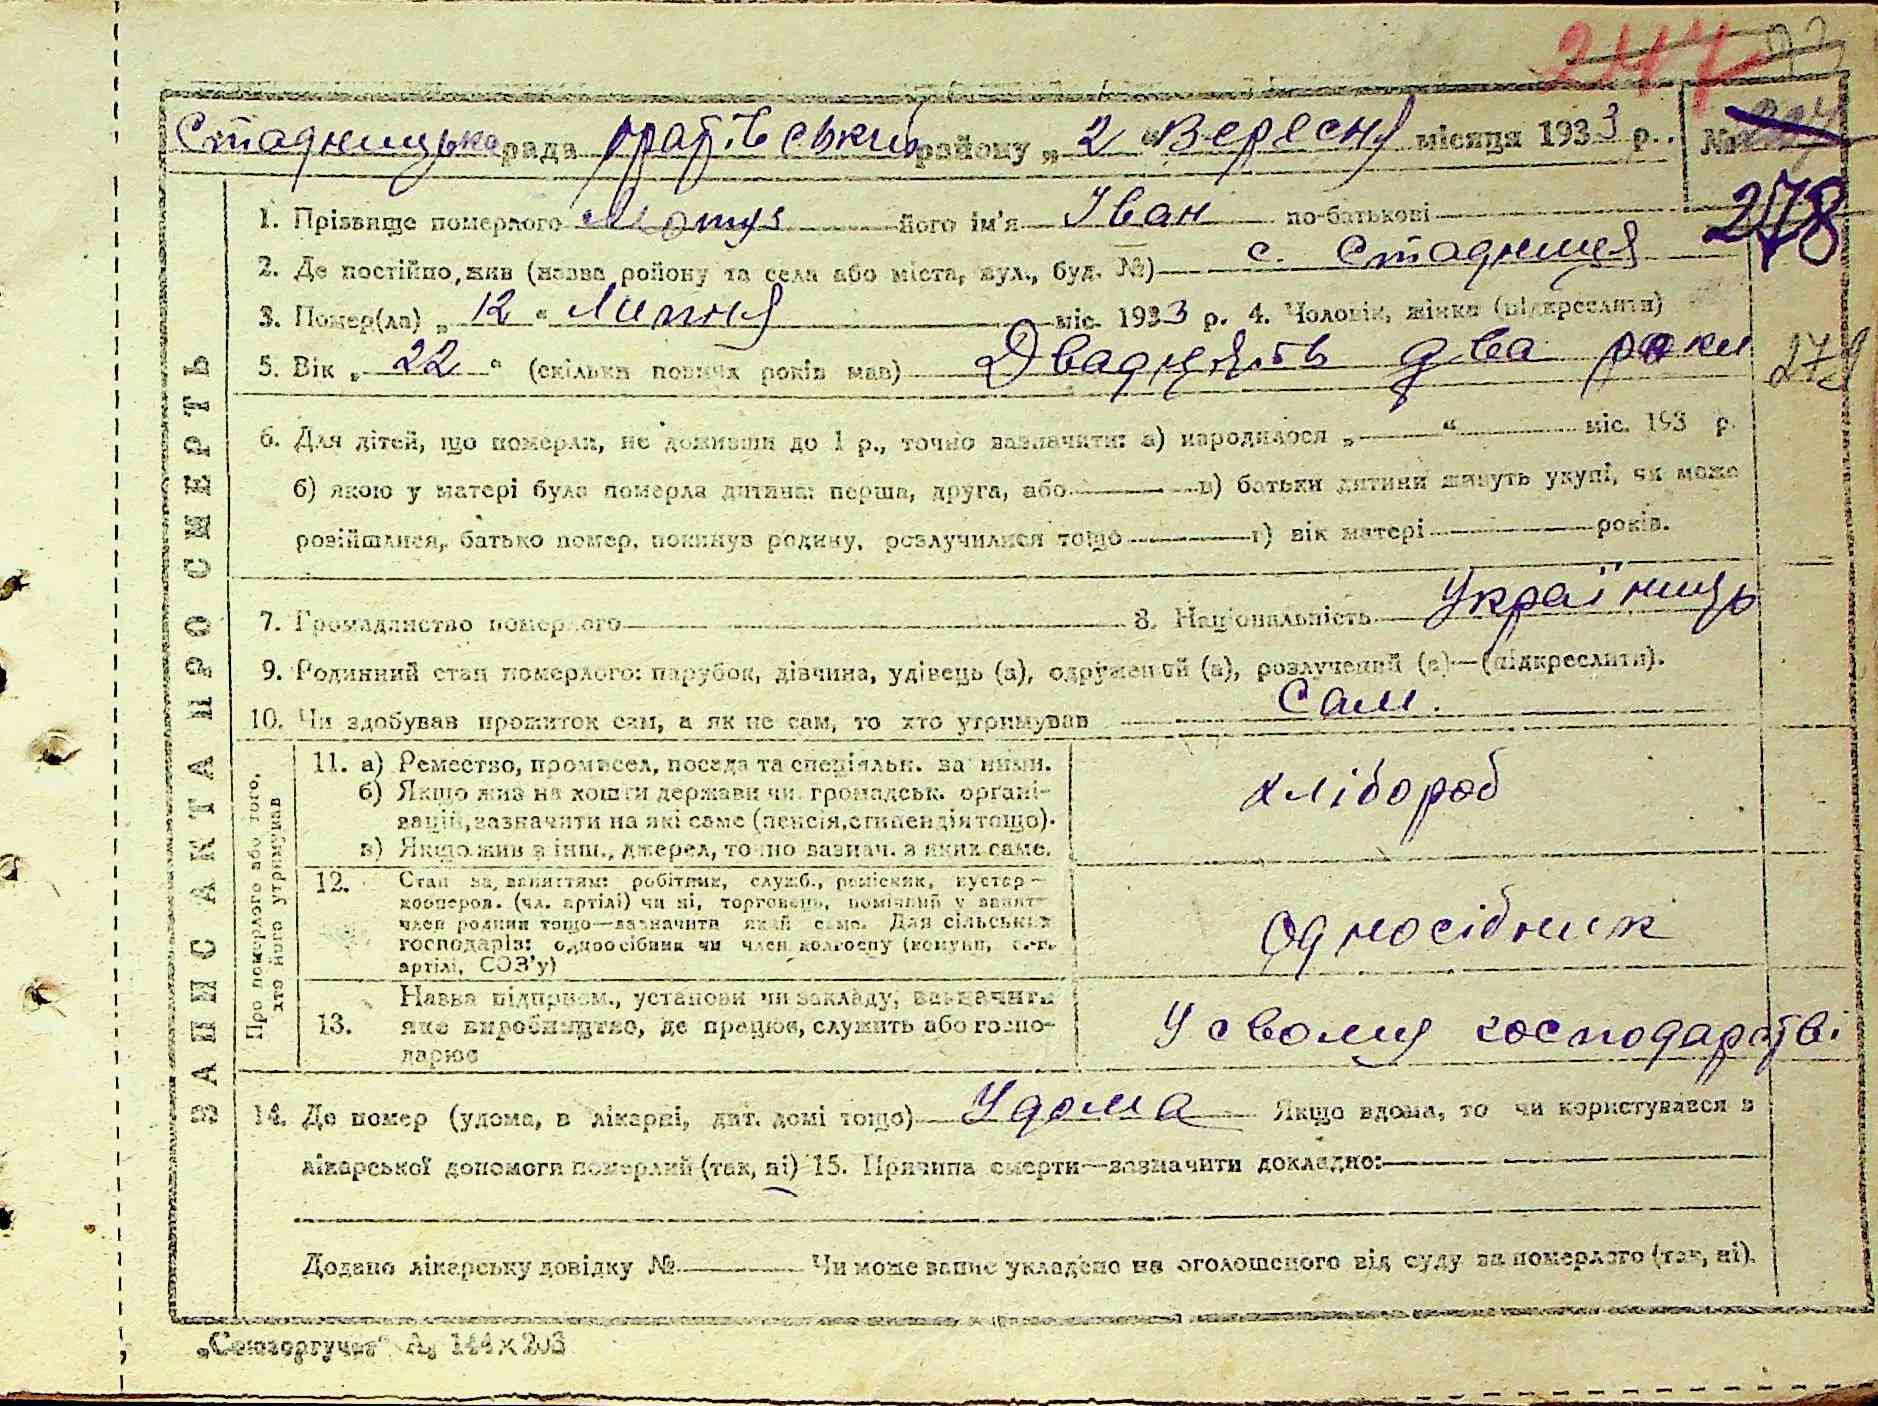 247
Стадницька рада района „ 2 " Вересня місяця 1933 р. №
278
1. Прізвище померлого Мотуз його ім'я Іван по-батькові
2. Де постійно жив (назва району та села або міста, вул., буд. №) с. Стадниця
3. Помер(ла) „ 12 " Липня міс. 1933 р. 4. Чоловік, жінка (підкреслити)
5. Вік „ 22 " (скільки повних років мав) Двадцять два роки
278
6. Для дітей, що померли, не доживши до 1 р., точно зазначити: а) народилося „ " міс. 193 р.
б) якою у матері була померла дитина: перша, друга, або в) батьки дитини живуть укупі, чи може
розійшлися, батько помер, покинув родину, розлучилися тощо г) вік матері років.
7. Громадянство померлого 8. Національність Українець
9. Родинний стан померлого: парубок, дівчина, удівець (а), одружений (а), розлучений (а)—(підкреслити).
10. Чи здобував прожиток сам, а як не сам, то хто утримував Сам.
ЗАПИС АКТА ПРО СМЕРТЬ
Про померлого або того,
хто його утримував
11. а) Ремество, промисел, посада та спеціяльн. за ними.
б) Якщо жив на кошти держави чи громадськ. органі-
зацій, зазначити на які саме (пенсія, стипендія тощо).
в) Якщо жив з інш. джерел, точно зазнач. з яких саме.
хлібороб
12. Стан за заняттям: робітник, служб., ремісник, кустар—
кооперов. (чл. артілі) чи ні, торговець, помічний у занят—
член родини тощо—зазначити який саме. Для сільських
господарів: одноосібник чи член колгоспу (комуни, с.-г.
артілі, СОЗ'у)
Односібник
13. Назва підприєм., установи чи закладу, зазначити
яке виробництво, де працює, служить або госпо-
дарює
У свому господарстві
14. Де помер (удома, в лікарні, дит. домі тощо) Удома Якщо вдома, то чи користувався з
лікарської допомоги померлий (так, ні) 15. Причина смерти—зазначити докладно:
Додано лікарську довідку № Чи може запис укладено на оголошеного від суду за померлого (так, ні).
„Союзоргучет" А, 144×203